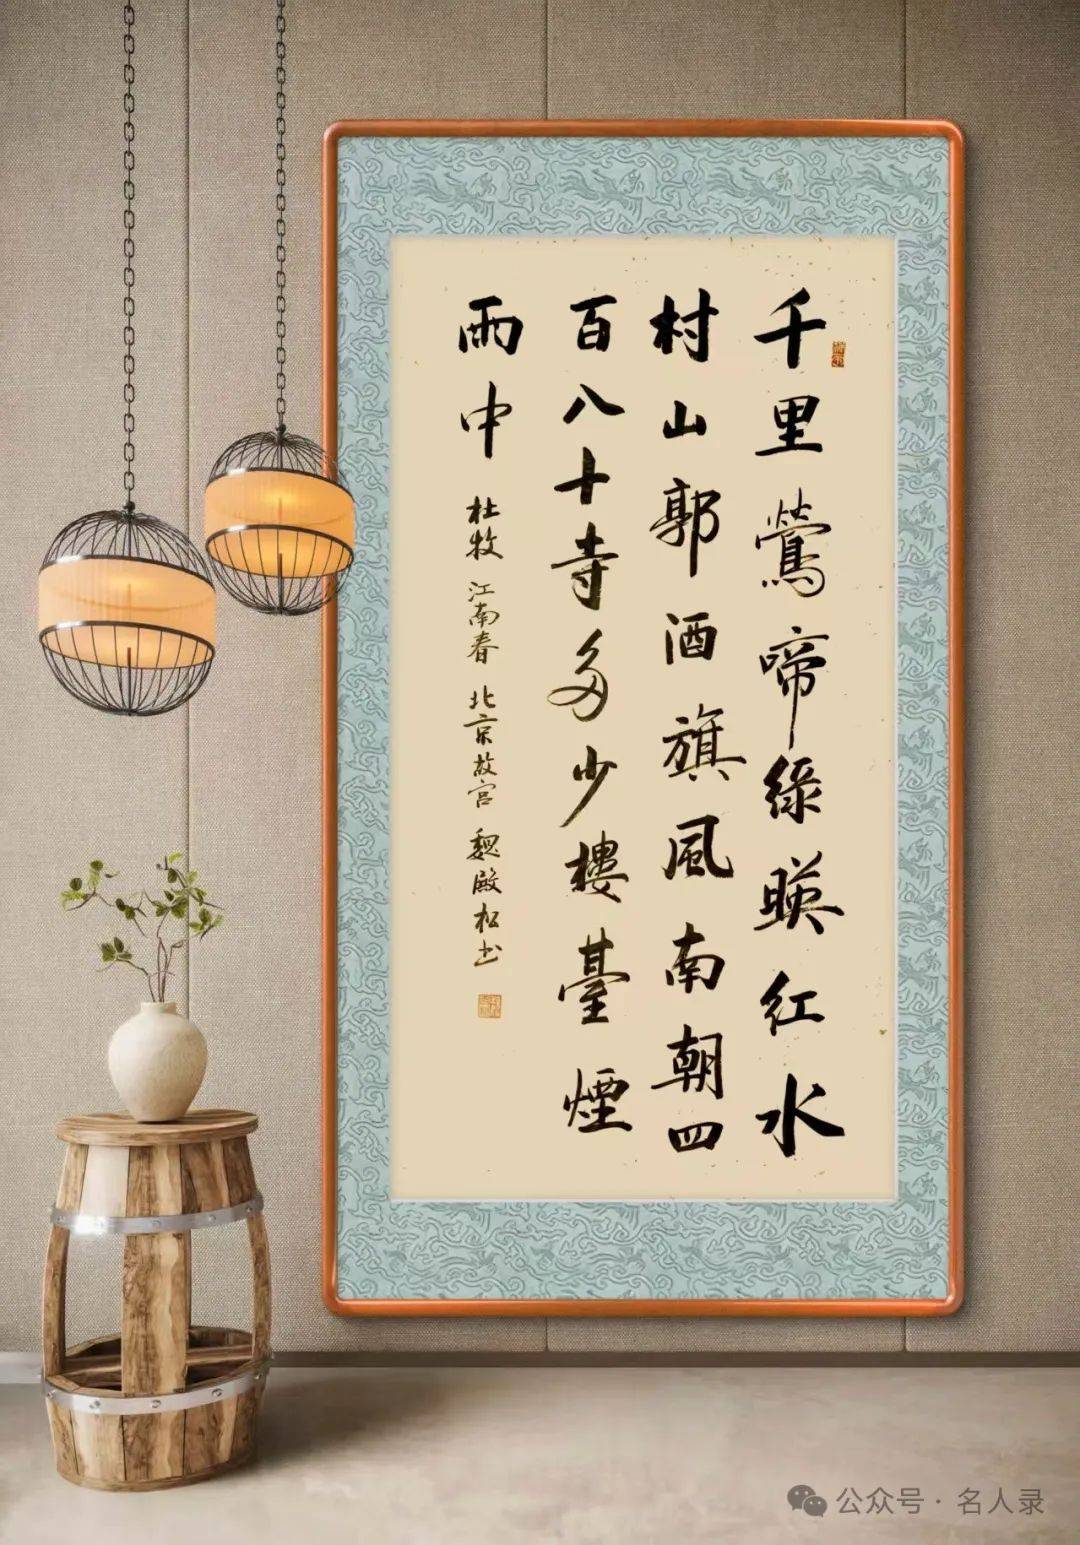 千里鶯啼綠暎紅水
村山郭酒旗風南朝四
百八十寺多少樓臺煙
雨中
杜牧 江南春 北京故宫 魏殿松书
公众号·名人录